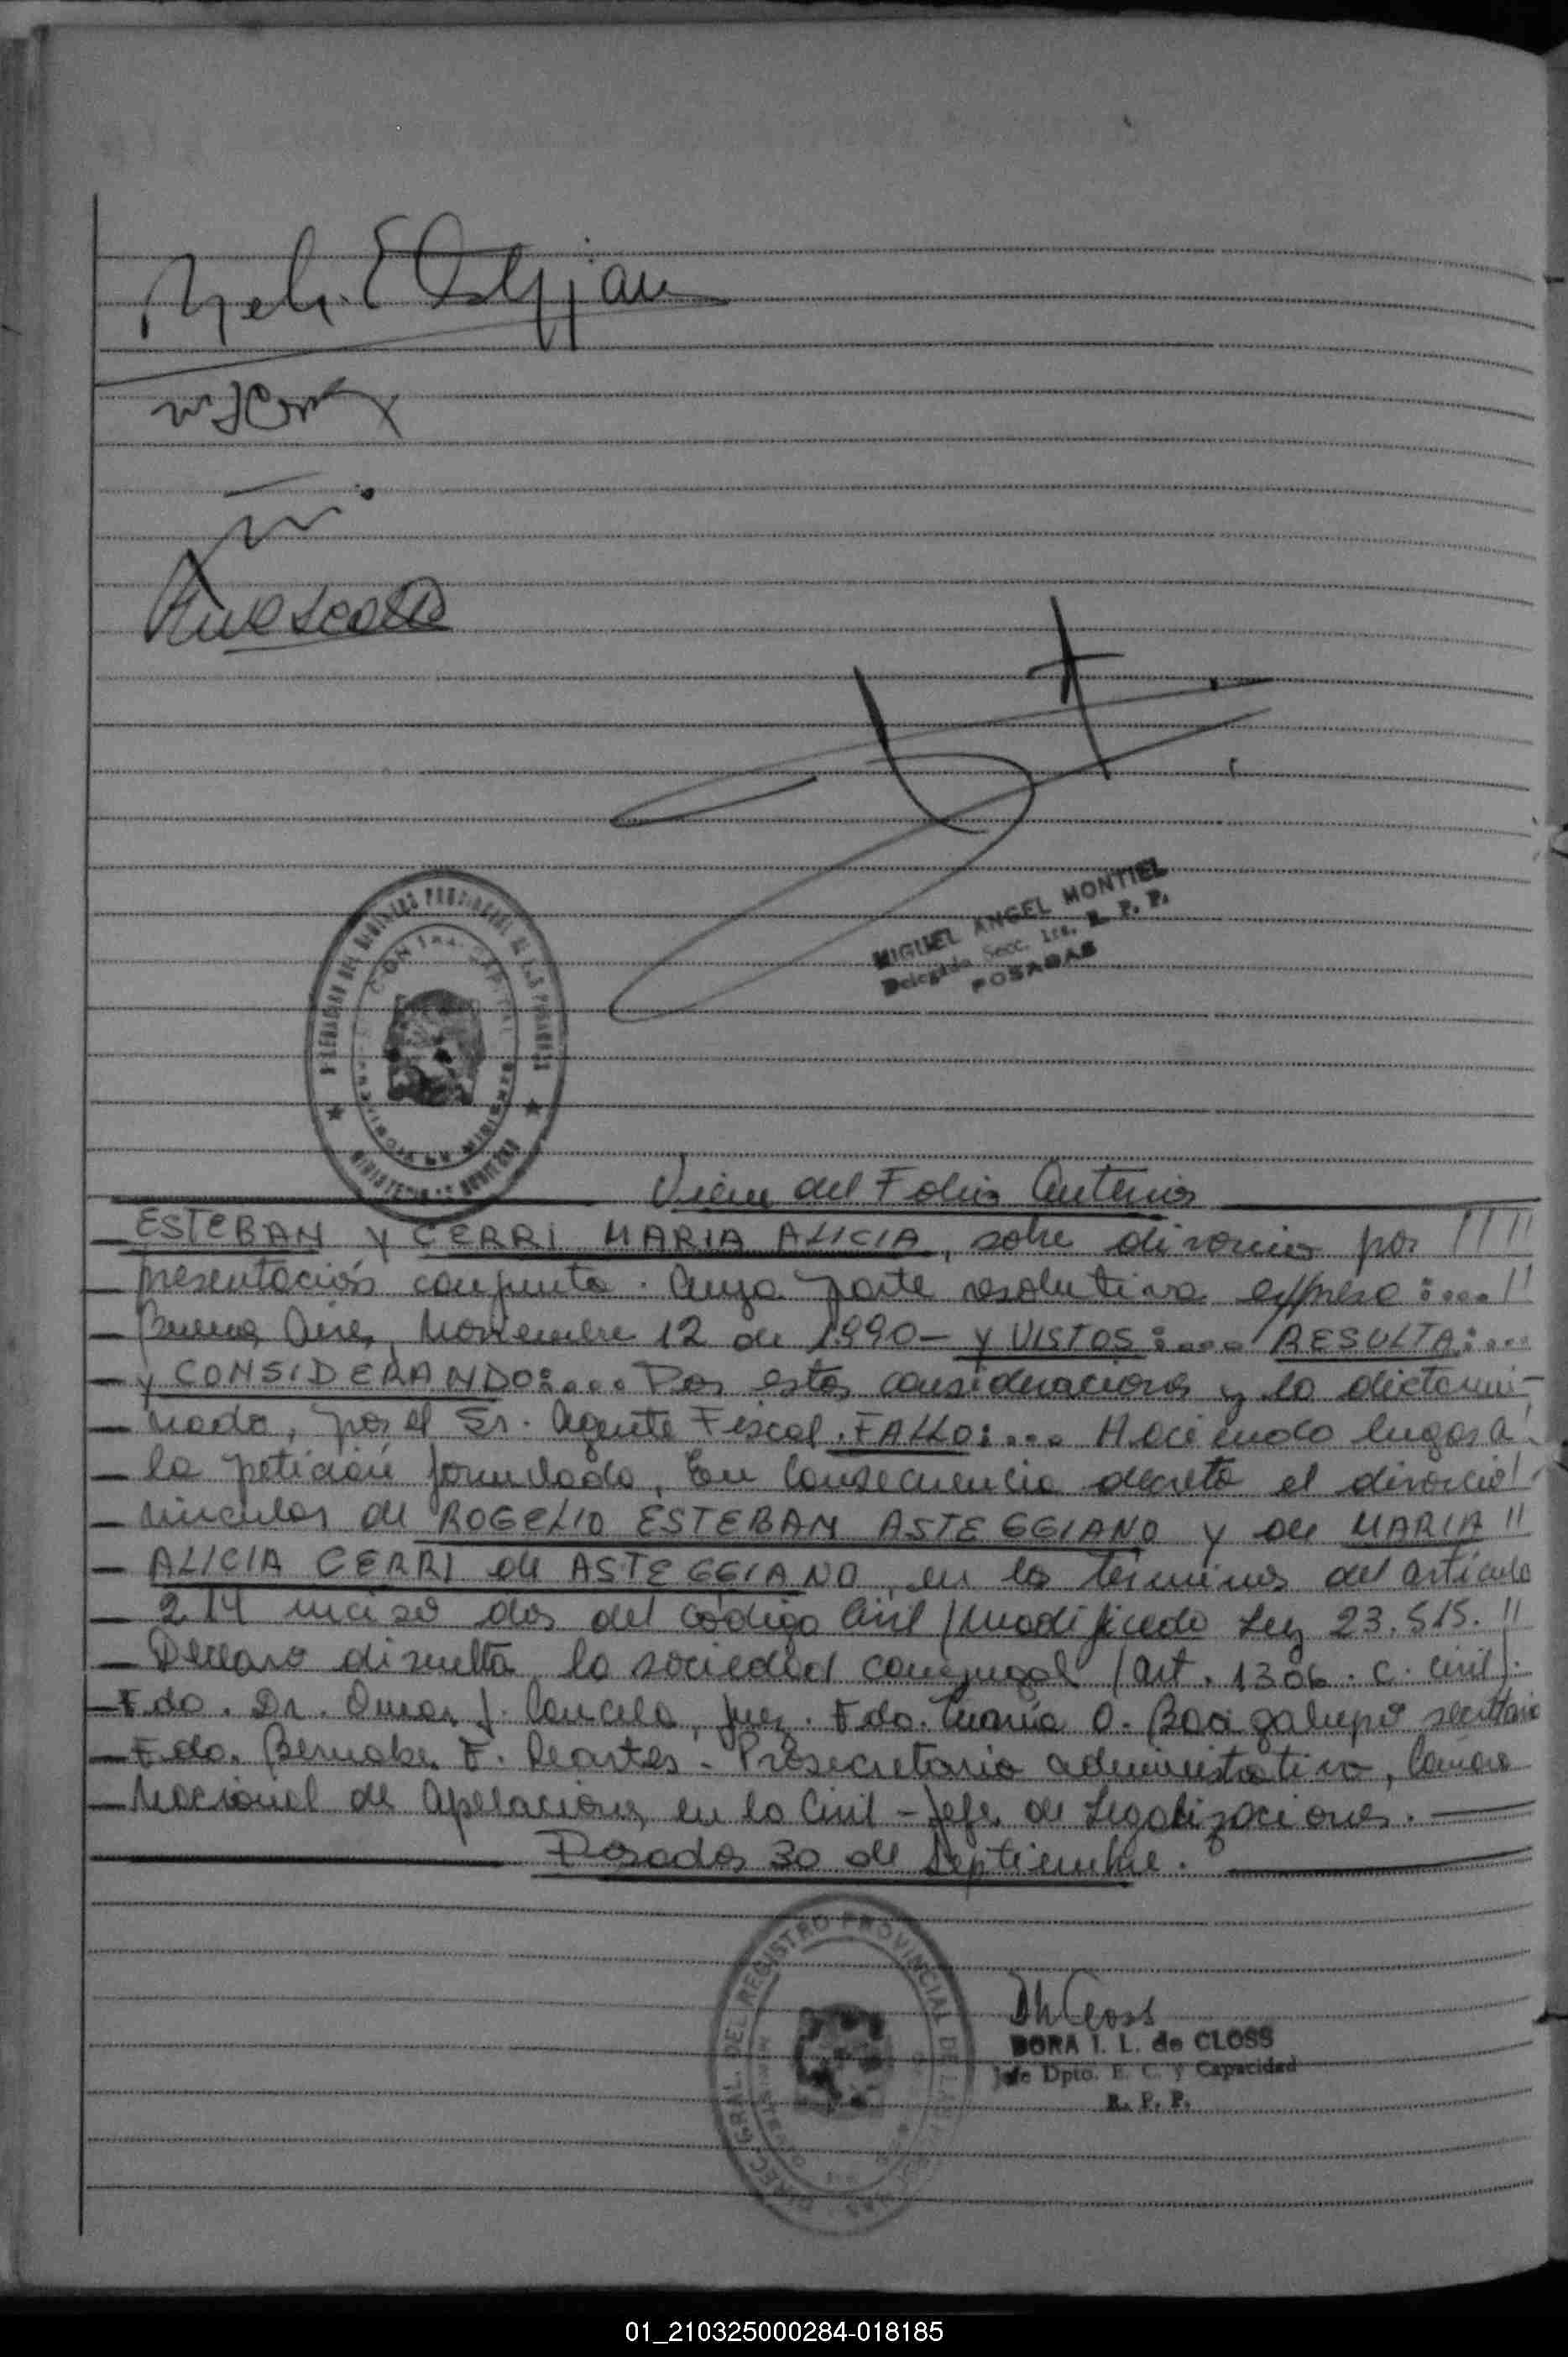 MIGUEL ANGEL MONTIEL
Delegado Secc. 1ra. R. P. P.
POSADAS
Viene del Folio Anterior
ESTEBAN Y CERRI MARIA ALICIA, sobre divorcio por !!!!
presentación conjunta. Cuya parte resolutiva expresa:....!!
Buenos Aires, Noviembre 12 de 1990- Y VISTOS:.... RESULTA:...
y CONSIDERANDO:.... Por estas consideraciones y lo dictami-
nado, por el Sr. Agente Fiscal. FALLO:.... Haciendo lugar a
la petición formulada, En Consecuencia decreto el divorcio
vincular de ROGELIO ESTEBAN ASTEGGIANO y de MARIA !!
ALICIA CERRI de ASTEGGIANO, en los terminos del artículo
214 inciso dos del Código Civil / modificado Ley 23.515. !!
Declaro disuelta la sociedad conyugal / art. 1306. C. Civil/.
Fdo. Dr. Omar J. Cancela, Juez. Fdo. O. secretario
Fdo. Bernabe F. - Prosecretario administrativo, Cámara
Nacional de Apelaciones en lo Civil - Jefe de Legalizaciones.
Posadas 30 de Septiembre.
DIREC. GRAL. DEL REGISTRO PROVINCIAL DE LAS PERSONAS
DORA I. L. de CLOSS
Jefe Dpto. E. C. y Capacidad
R. P. P.
01_210325000284-018185